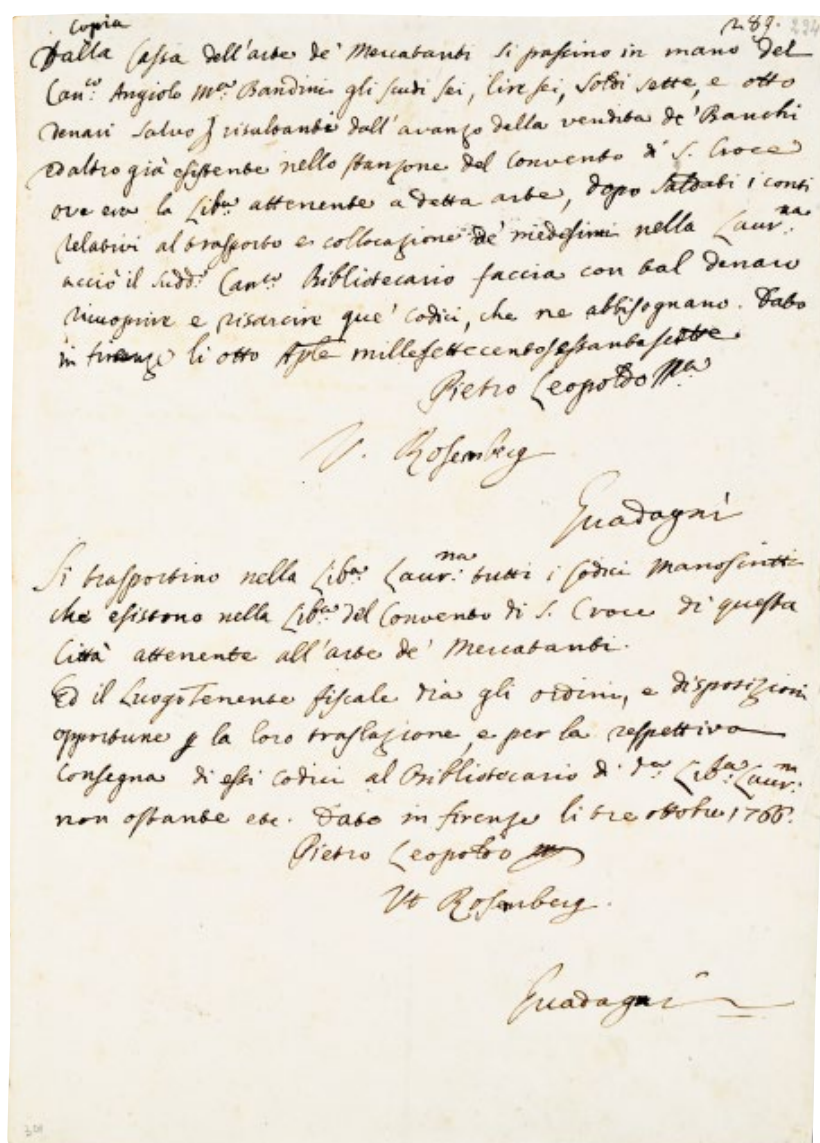 Copia
n. 89. 294
Dalla Cassa dell'arte de' Mercatanti si passino in mano del
Can.co Angiolo M.a Bandini gli scudi sei, lire sei, soldi sette, e otto
denari salvo risultanti dall'avanzo della vendita de' Banchi
ed altro già esistente nello stanzone del Convento di S. Croce
ove era la Lib.a attenente a detta arte, dopo saldati i conti
relativi al trasporto e collocazione de' medesimi nella Laur.na
acciò il sudd.o Can.co Bibliotecario faccia con tal denaro
ricuoprire e risarcire que' codici, che ne abbisognano. Dato
in firenze li otto Aple millesettecentosessantasette
Pietro Leopoldo
V. Rosenberg
Guadagni
Si trasportino nella Lib.a Laur.na tutti i Codici manoscritti
che esistono nella Lib.a del Convento di S. Croce di questa
Città attenente all'arte de' Mercatanti.
Ed il Luogo Tenente fiscale dia gli ordini, e disposizioni
opportune p la loro traslazione, e per la respettiva
Consegna di essi codici al Bibliotecario di d.a Lib.a Laur.na
non ostante etc. Dato in firenze li tre ottobre 1766.
Pietro Leopoldo
Vt Rosenberg.
Guadagni